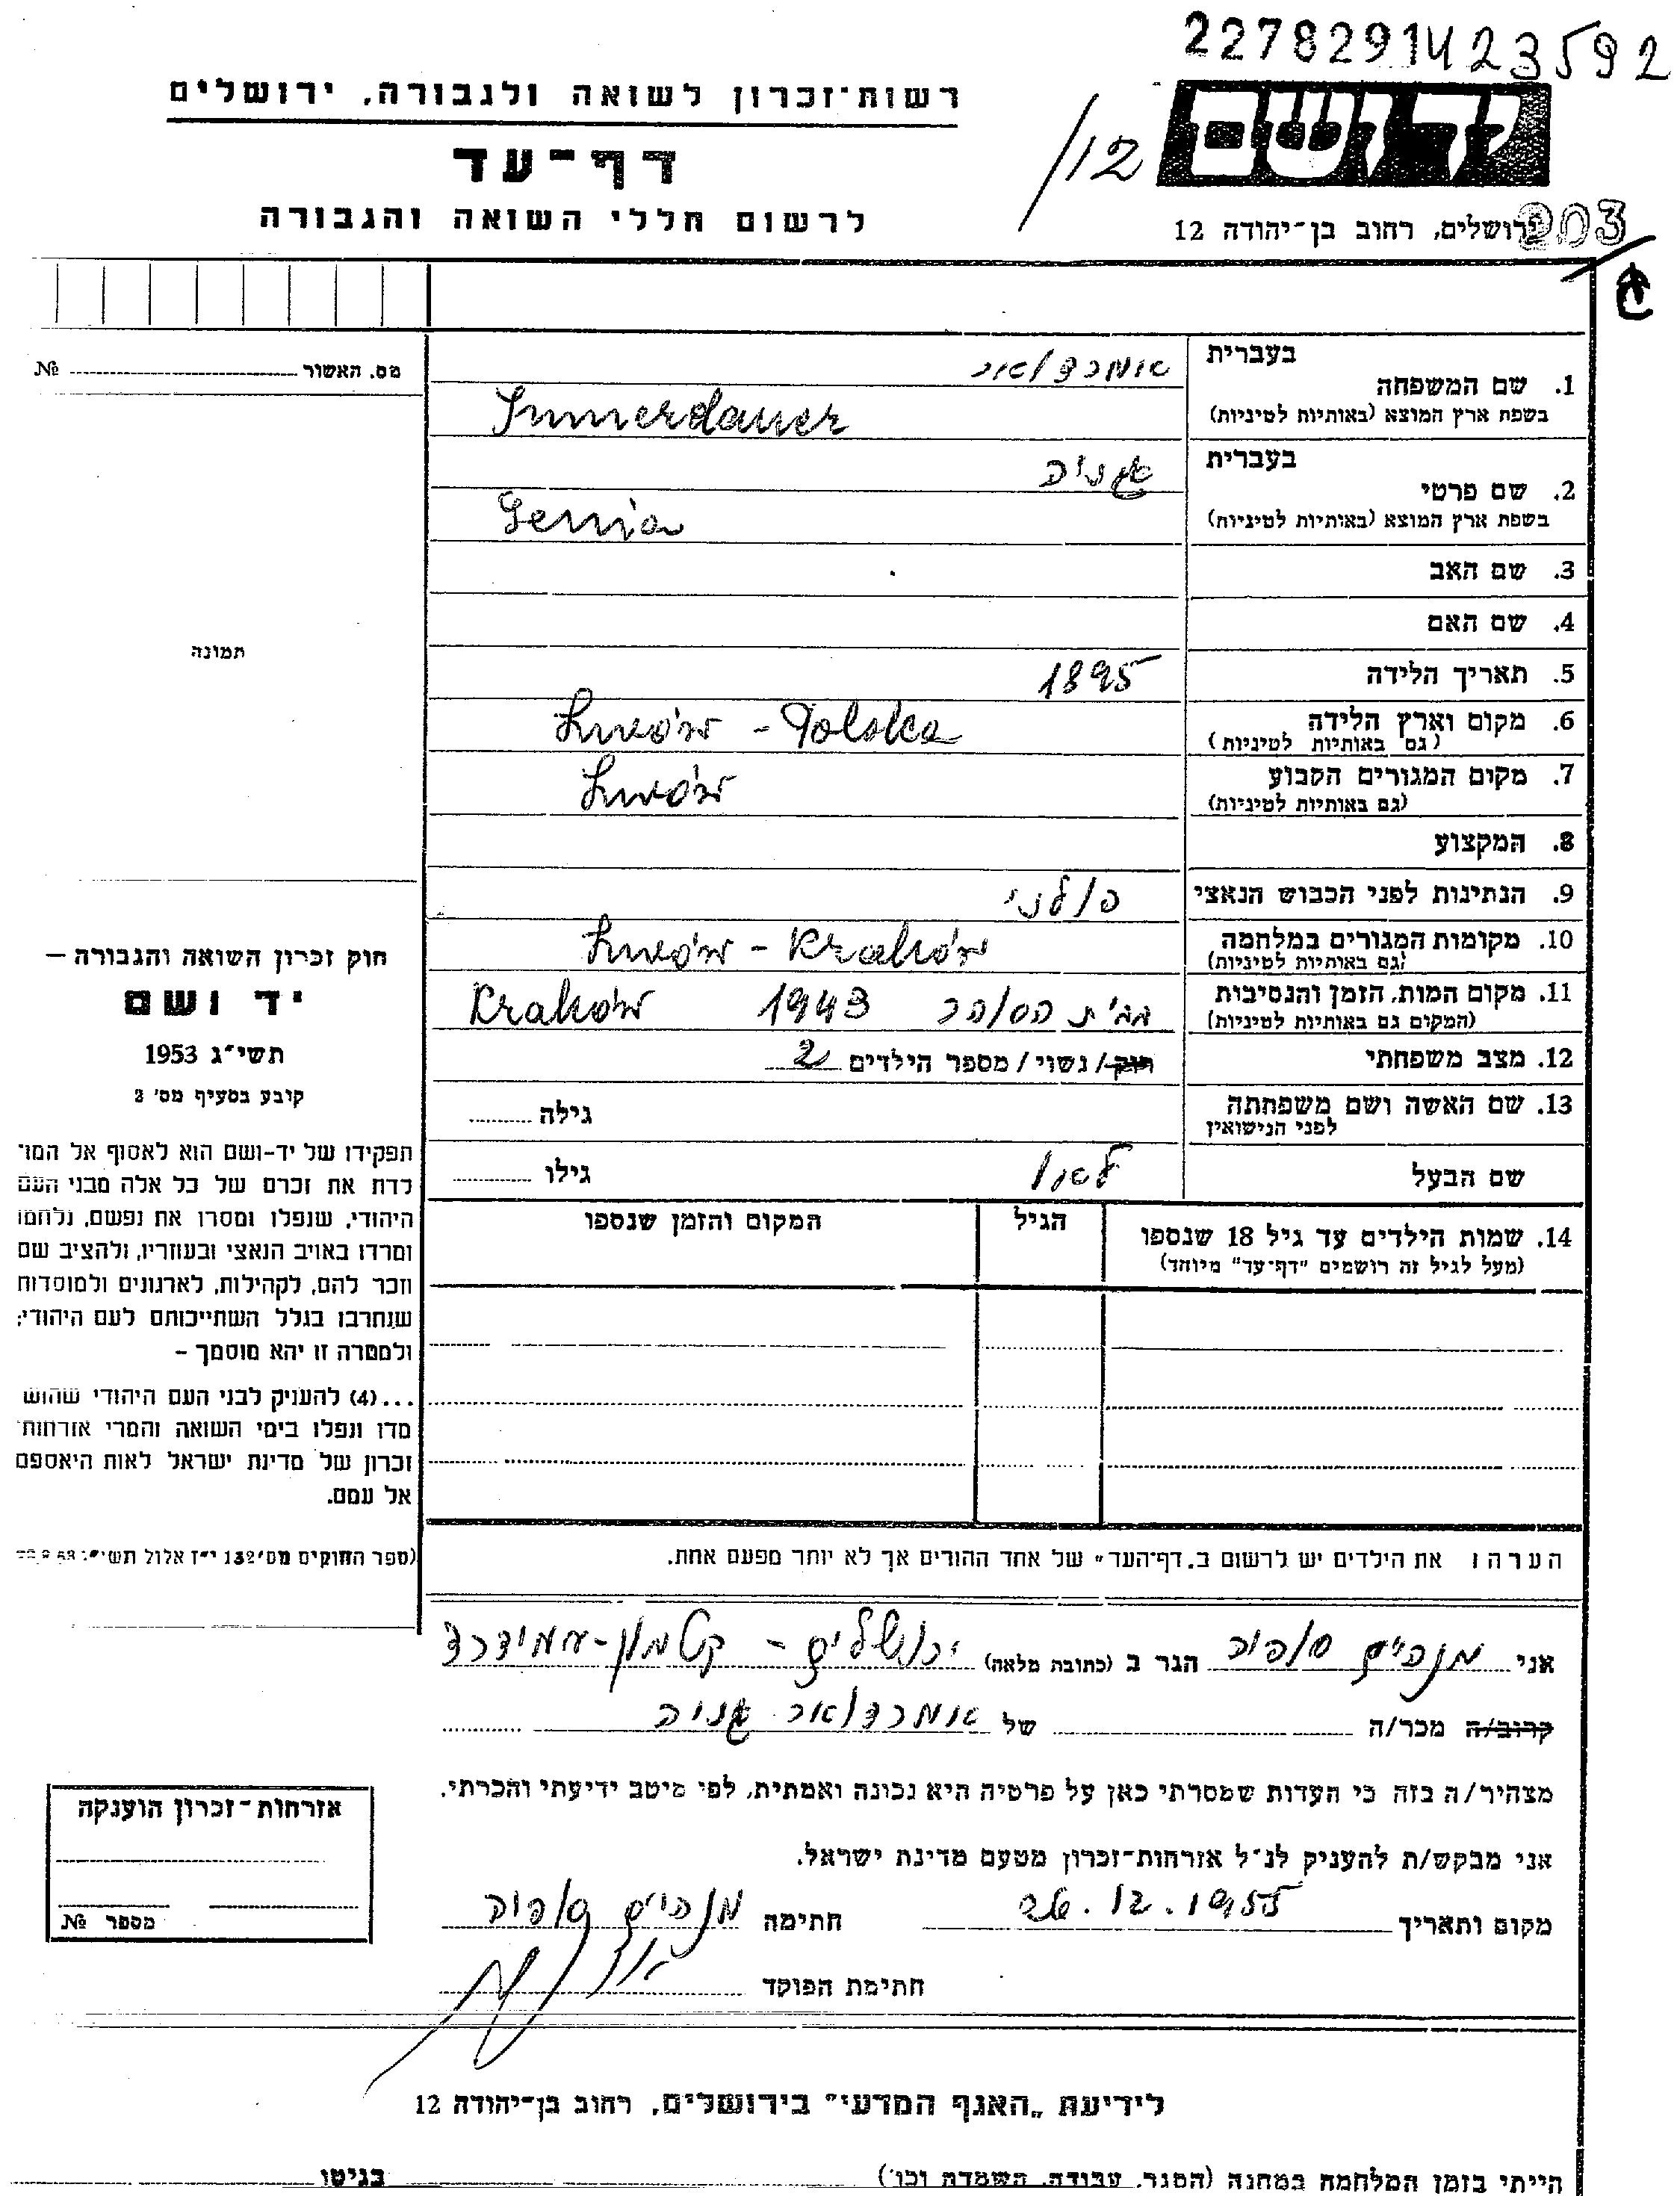 2278291423592
רשות־זכרון לשואה ולגבורה, ירושלים
ידושם
/12
דף־עד
לרשום חללי השואה והגבורה
ירושלים, רחוב בן־יהודה 12
203
מס. האשור № 
בעברית
1. שם המשפחה
בשפת ארץ המוצא (באותיות לטיניות)
Immerdauer
בעברית
2. שם פרטי
בשפת ארץ המוצא (באותיות לטיניות)
גניה
Genia
3. שם האב
4. שם האם
תמונה
5. תאריך הלידה 1895
6. מקום וארץ הלידה Lwów - Polska
(גם באותיות לטיניות)
7. מקום המגורים הקבוע Lwów
(גם באותיות לטיניות)
8. המקצוע
9. הנתינות לפני הכבוש הנאצי פולני
10. מקומות המגורים במלחמה Lwów - Kraków
(גם באותיות לטיניות)
11. מקום המות, הזמן והנסיבות בבית הסוהר 1943 Kraków
(המקום גם באותיות לטיניות)
12. מצב משפחתי רווק/ נשוי / מספר הילדים 2
13. שם האשה ושם משפחתה גילה
לפני הנישואין
שם הבעל לאון גילו
14. שמות הילדים עד גיל 18 שנספו הגיל המקום והזמן שנספו
(מעל לגיל זה רושמים "דף־עד" מיוחד)
חוק זכרון השואה והגבורה –
יד ושם
תשי״ג 1953
קובע בסעיף מס׳ 2
תפקידו של יד-ושם הוא לאסוף אל המו־
לדת את זכרם של כל אלה מבני העם
היהודי, שנפלו ומסרו את נפשם, נלחמו
ומרדו באויב הנאצי ובעוזריו, ולהציב שם
וזכר להם, לקהילות, לארגונים ולמוסדות
שנחרבו בגלל השתייכותם לעם היהודי;
ולמטרה זו יהא מוסמך –
...(4) להעניק לבני העם היהודי שהוש
מדו ונפלו בימי השואה והמרי אזרחות־
זכרון של מדינת ישראל לאות היאספם
אל עמם.
(ספר החוקים מס׳ 132 י״ז אלול תשי״ג
הערה: את הילדים יש לרשום ב„דף־העד" של אחד ההורים אך לא יותר מפעם אחת.
אני מנהיים סופיה הגר ב (כתובת מלאה) ירושלים - קטמון-עמידרד
קרוב/ה מכר/ה של אומרדאור גניה
מצהיר/ה בזה כי העדות שמסרתי כאן על פרטיה היא נכונה ואמתית, לפי מיטב ידיעתי והכרתי.
אני מבקש/ת להעניק לנ״ל אזרחות־זכרון מטעם מדינת ישראל.
מקום ותאריך 26.12.1955 חתימה מנהיים סופיה
חתימת הפוקד
אזרחות־זכרון הוענקה
מספר №
לידיעת „האגף המדעי" בירושלים, רחוב בן־יהודה 12
הייתי בזמן המלחמה במחנה (הסגר, עבודה, השמדה וכו׳) בגיטו